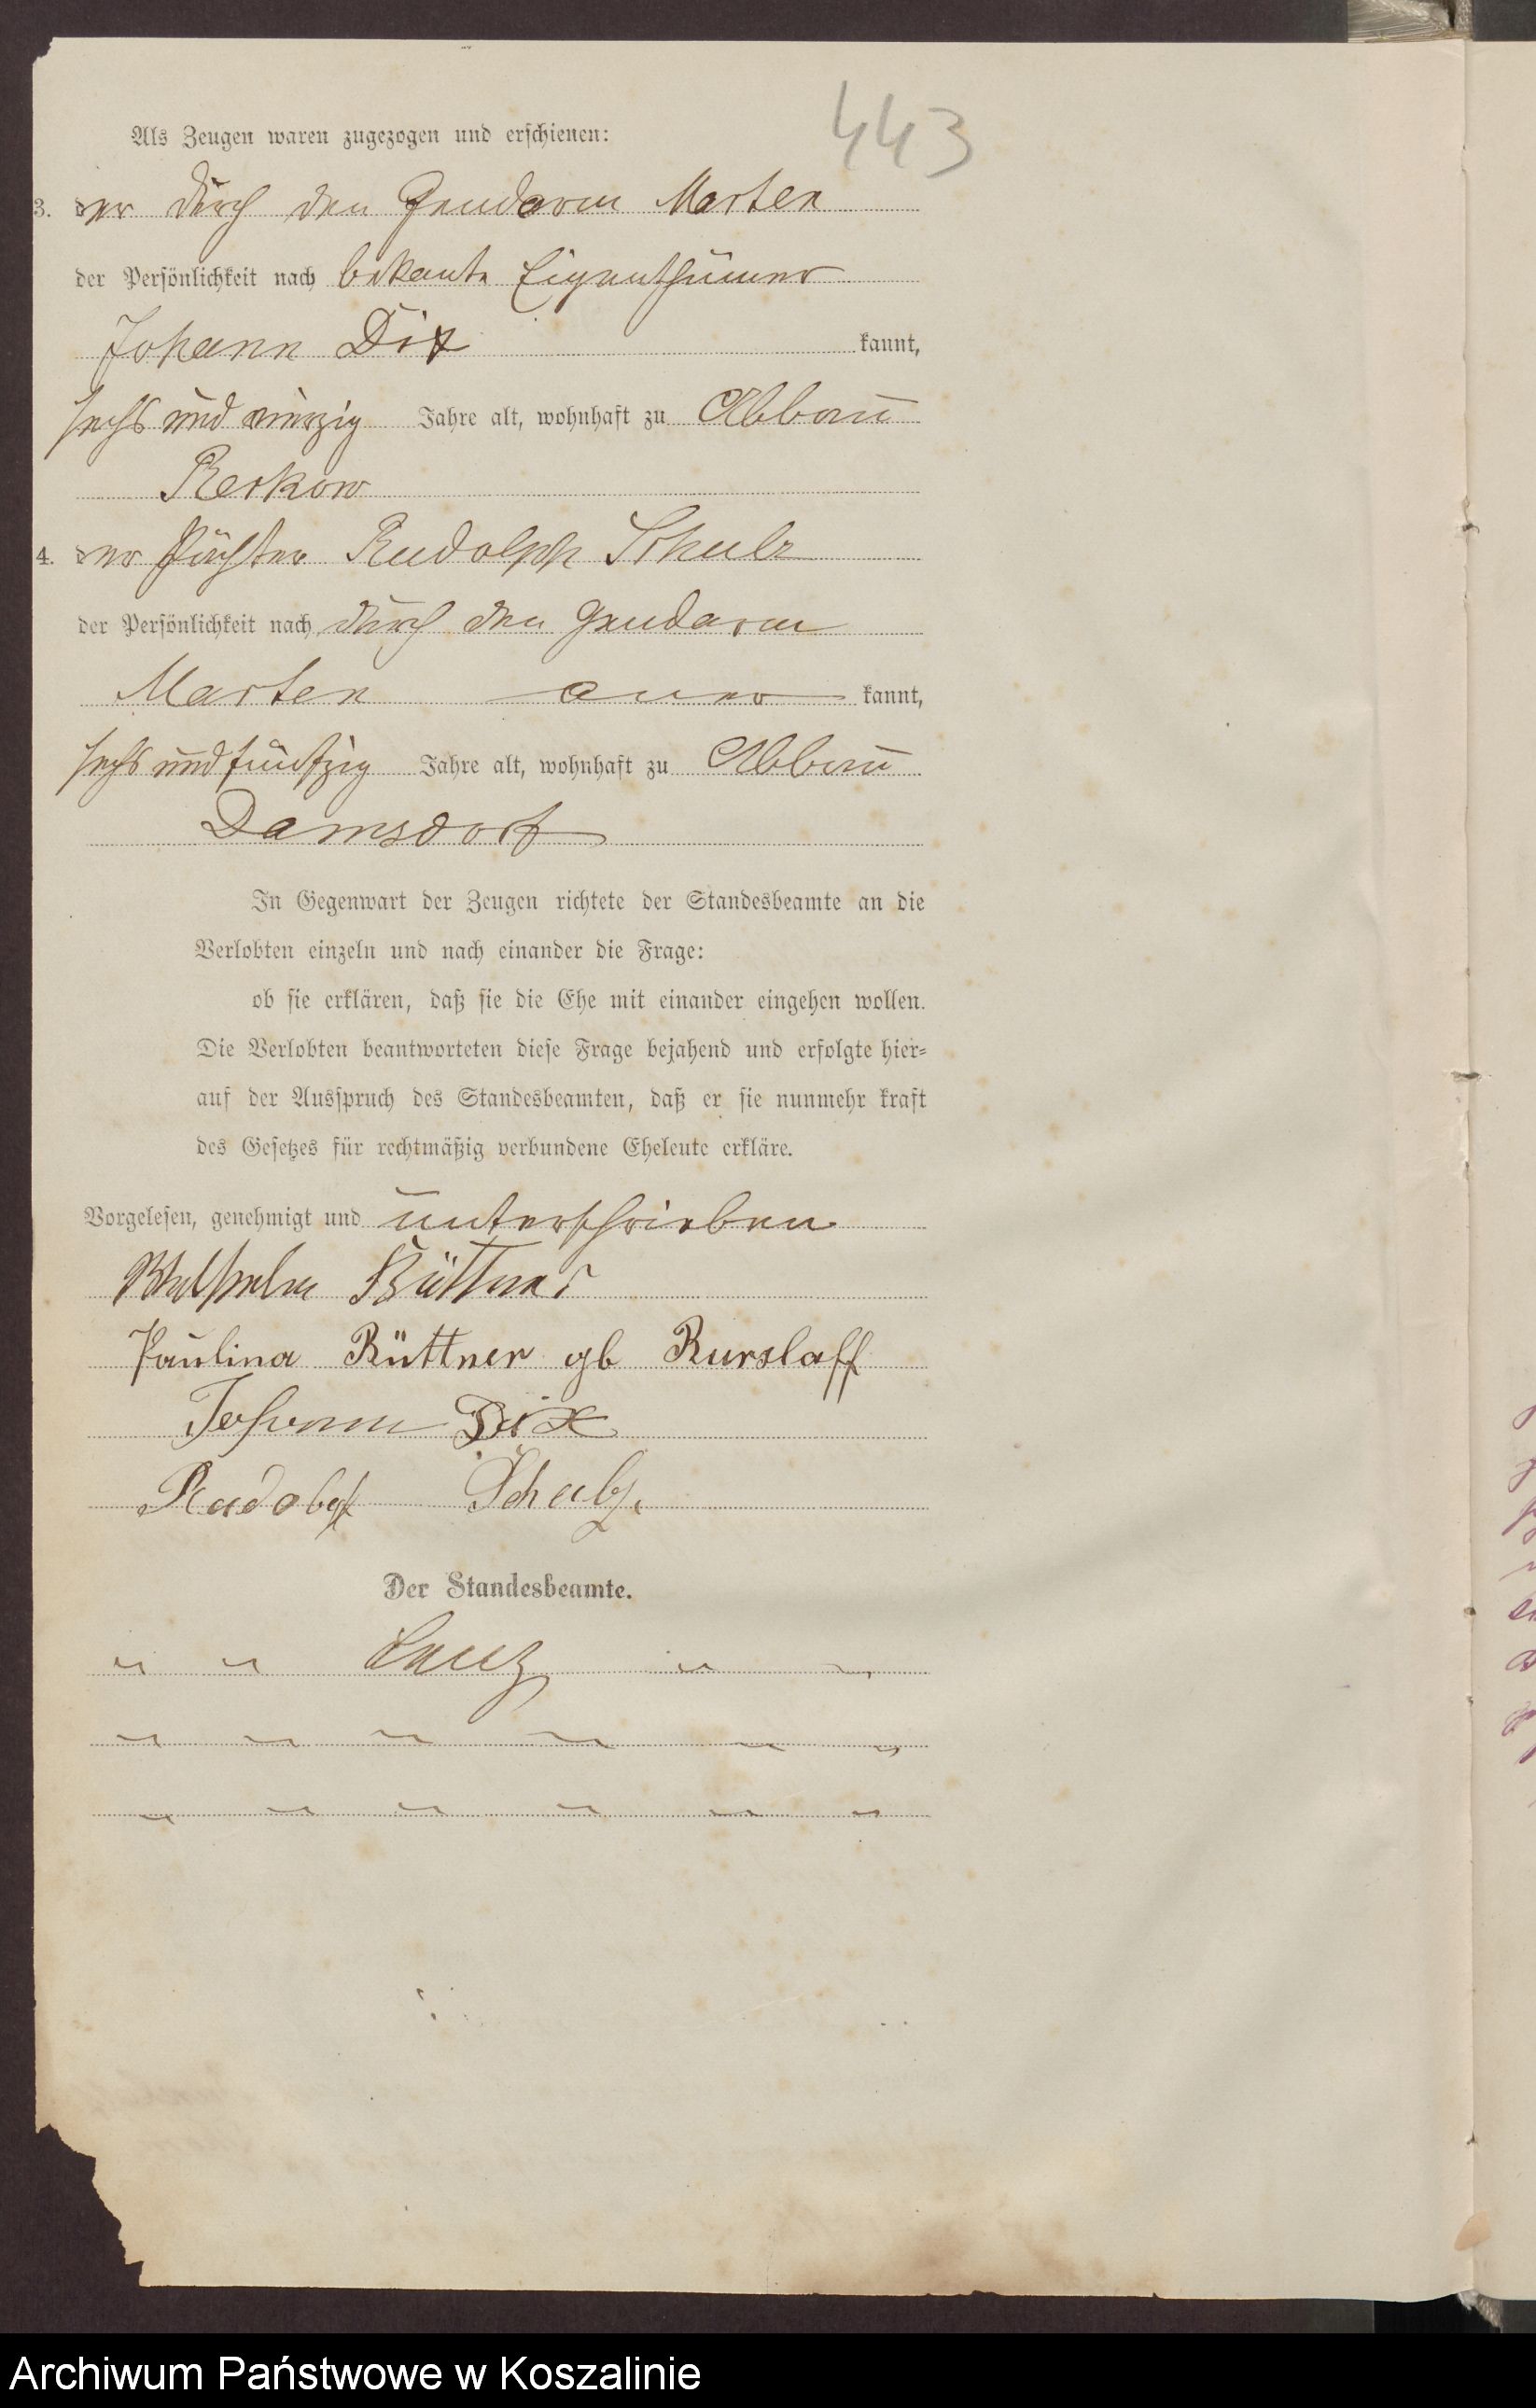 443
Als Zeugen waren zugezogen und erschienen:
3. der durch den Gendarm Marten
der Persönlichkeit nach bekante Eigenthümer
Johann Dix kannt,
sechs und vierzig Jahre alt, wohnhaft zu Abbau
Reckow
4. der Pächter Rudolph Schulz
der Persönlichkeit nach durch den Gendarm
Marten aner kannt,
sechs und fünfzig Jahre alt, wohnhaft zu Abbau
Damsdorf
In Gegenwart der Zeugen richtete der Standesbeamte an die
Verlobten einzeln und nach einander die Frage:
ob sie erklären, daß sie die Ehe mit einander eingehen wollen.
Die Verlobten beantworteten diese Frage bejahend und erfolgte hier-
auf der Ausspruch des Standesbeamten, daß er sie nunmehr kraft
des Gesetzes für rechtmäßig verbundene Eheleute erkläre.
Vorgelesen, genehmigt und unterschrieben
Wilhelm Büttner
Paulina Büttner gb Rurslaff
Johann Dix
Rudolph Schulz.
Der Standesbeamte.
Archiwum Państwowe w Koszalinie